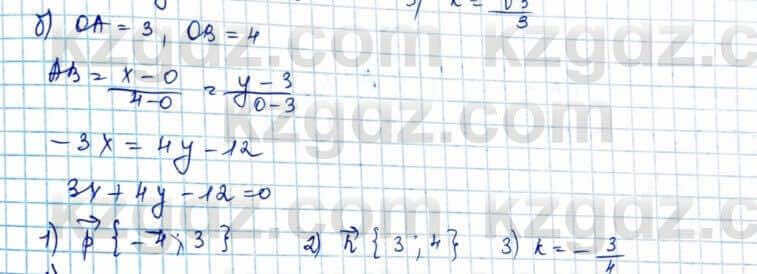 3) k = √3/3
б) OA = 3, OB = 4
AB = x-0/4-0 = y-3/0-3
-3x = 4y-12
3x+4y-12=0
1) p⃗ {-4; 3} 2) n⃗ {3; 4} 3) k = -3/4
kzgdz.com kzgdz.com
kzgdz.com
kzgdz.com kzgdz.com